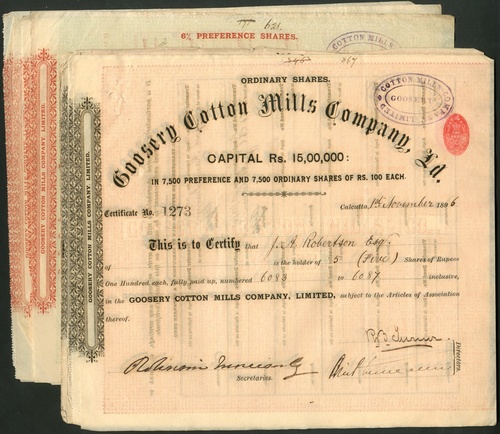 621
6% PREFERENCE SHARES.
COTTON MILLS
COTTON MILLS COMPANY, LIMITED.
GOOSERY COTTON MILLS COMPANY, LIMITED.
267
ORDINARY SHARES.
COTTON MILLS COMPANY LIMITED
GOOSERY
Goosery Cotton Mills Company, Ld.
CAPITAL Rs. 15,00,000:
IN 7,500 PREFERENCE AND 7,500 ORDINARY SHARES OF RS. 100 EACH.
Certificate No. 1273
Calcutta, 1st November 1896
This is to Certify that J. A. Robertson Esq.
is the holder of 5 (Five) Shares of Rupees
One Hundred each, fully paid up, numbered 6083 to 6087 inclusive,
in the GOOSERY COTTON MILLS COMPANY, LIMITED, subject to the Articles of Association
thereof.
GOOSERY COTTON MILLS COMPANY, LIMITED.
Directors.
Secretaries.